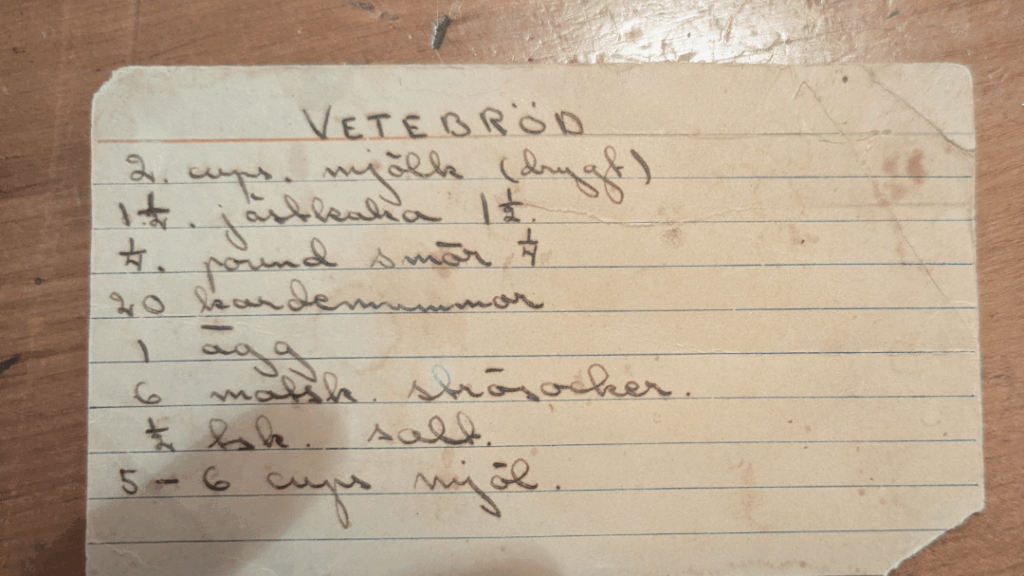 VETEBRÖD
2. cups. mjölk (drygt)
1 1/2. jästkaka 1 1/2.
1/4. pound smör 1/4
20 kardemummor
1 ägg
6 matsk. strösocker.
1/2 tsk. salt.
5 - 6 cups mjöl.